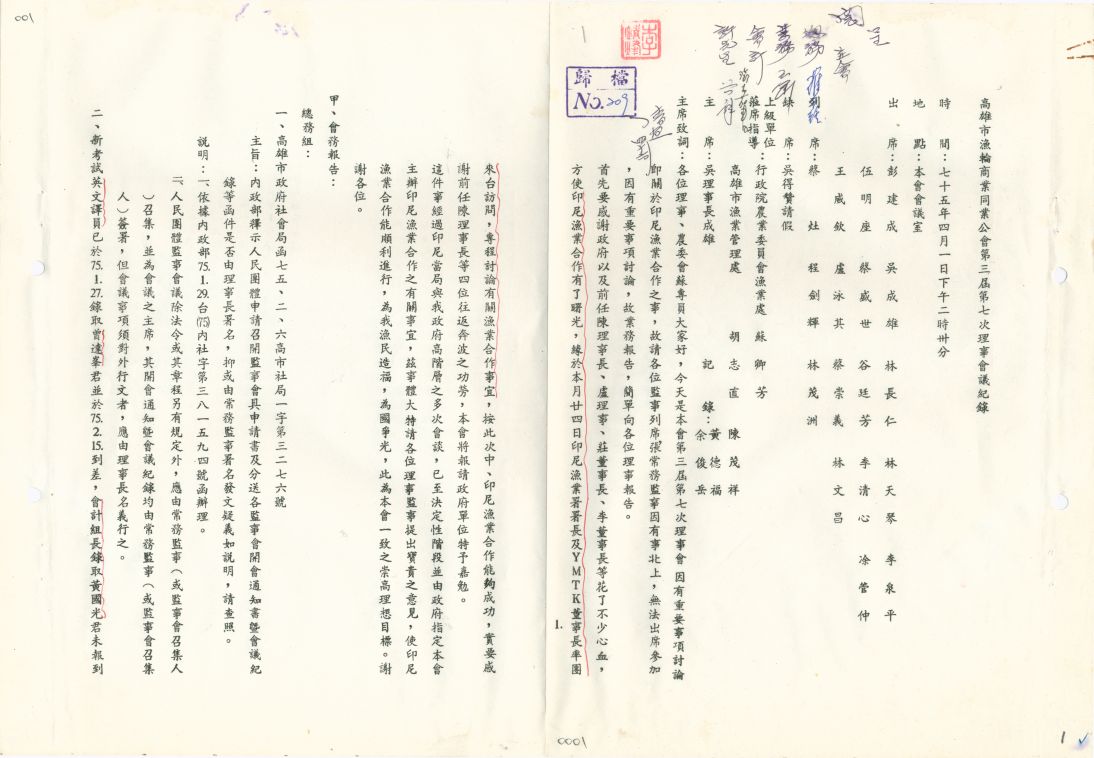 高雄市漁輪商業同業公會第三屆第七次理事會議紀錄
時　間：七十五年四月一日下午二時卅分
地　點：本會會議室
出　席：彭建成　吳成雄　林長仁　林天琴　李泉平
伍明座　蔡威世　谷廷芳　李清心　凃管仲
王威欽　盧泳其　蔡崇義　林文昌
列　席：蔡　灶　程劍輝　林茂洲
缺　席：吳得贊請假
上級單位
蒞席指導：行政院農業委員會漁業處　蘇卿芳
高雄市漁業管理處　胡志直
主　席：吳理事長成雄　記　錄：陳茂祥
黃德福
余俊岳
主席致詞：各位理事、農委會蘇專員大家好，今天是本會第三屆第七次理事會因有重要事項討論
即關於印尼漁業合作之事，故請各位監事列席，張常務監事因有事北上，無法出席參加
，因有重要事項討論，故業務報告，簡單向各位理事報告。
首先要感謝政府以及前任陳理事長、盧理事、莊董事長、李董事長等花了不少心血，
方使印尼漁業合作有了曙光，緣於本月廿四日印尼漁業署署長及YMTK董事長率團
1.
歸檔
No. 209
0001
1
來台訪問，專程討論有關漁業合作事宜，按此次中、印尼漁業合作能夠成功，實要感
謝前任陳理事長等四位往返奔波之功勞，本會將報請政府單位特予嘉勉。
這件事經過印尼當局與我政府高階層之多次會談，已至決定性階段並由政府指定本會
主辦印尼漁業合作之有關事宜，茲事體大特請各位理事監事提出寶貴之意見，使印尼
漁業合作能順利進行，為我漁民造福，為國爭光，此為本會一致之崇高理想目標。謝
謝各位。
甲、會務報告：
總務組：
一、高雄市政府社會局函七五、二、六高市社局一字第三二七六號
主旨：內政部釋示人民團體申請召開監事會具申請書及分送各監事會開會通知書暨會議紀
錄等函件是否由理事長署名，抑或由常務監事署名發文疑義如說明，請查照。
說明：一、依據內政部75.1.29.台(75)內社字第三八一五九四號函辦理。
二、人民團體監事會議除法令或其章程另有規定外，應由常務監事（或監事會召集人
）召集，並為會議之主席，其開會通知暨會議紀錄均由常務監事（或監事會召集
人）簽署，但會議事項須對外行文者，應由理事長名義行之。
二、新考試英文譯員已於75.1.27.錄取曾達峯君並於75.2.15.到差，會計組長錄取黃國光君未報到
001